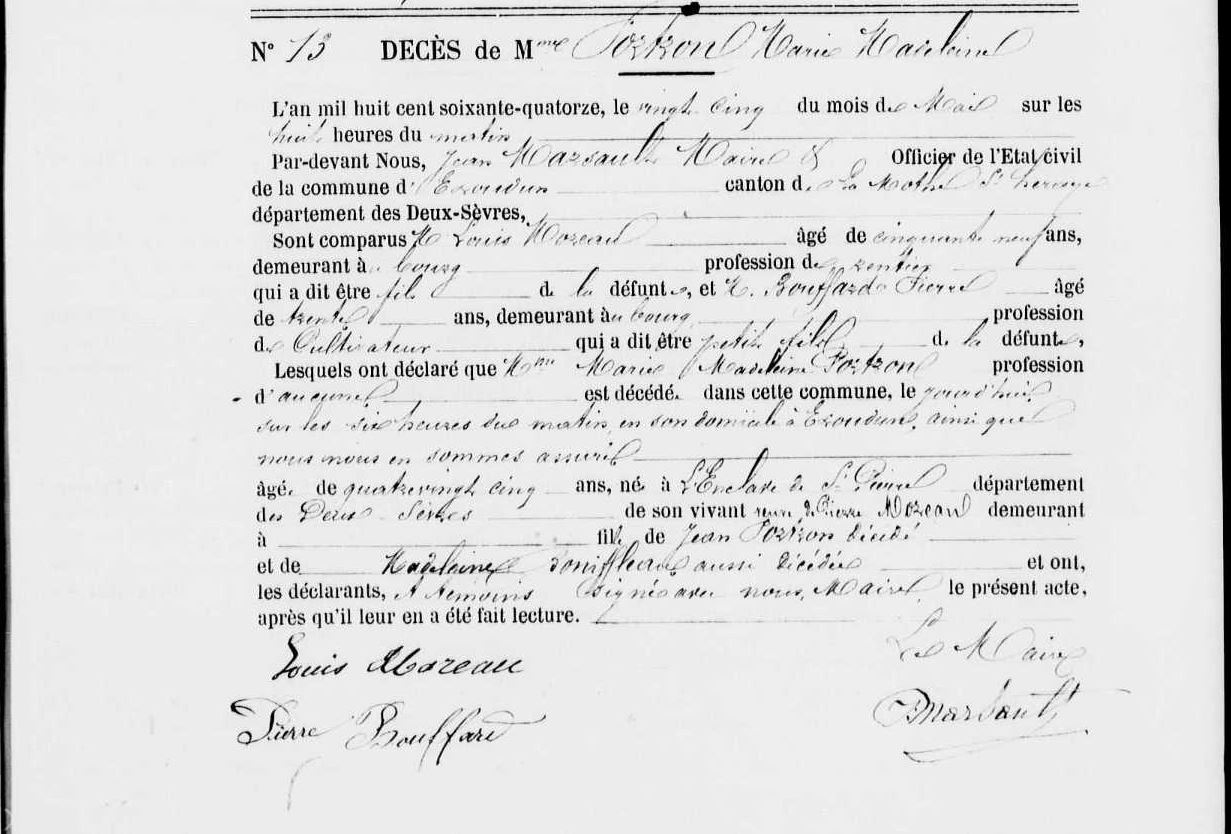 N° 13 DECÈS de Mme Portron Marie Madeleine
L'an mil huit cent soixante-quatorze, le vingt cinq du mois de Mai sur les
huit heures du matin
Par-devant Nous, Jean Marsault Maire & Officier de l'Etat civil
de la commune d'Exoudun canton de La Mothe St Heraye
département des Deux-Sèvres,
Sont comparus M Louis Moreau âgé de cinquante neuf ans,
demeurant à bourg profession de rentier
qui a dit être fils de la défunte, et M. Bouffard Pierre âgé
de trente ans, demeurant au bourg profession
de Cultivateur qui a dit être petit fils de la défunte,
Lesquels ont déclaré que Mme Marie Madeleine Portron profession
d'aucune est décédée dans cette commune, le jourd'hui
sur les six heures du matin, en son domicile à Exoudun, ainsi que
nous nous en sommes assuré
âgée de quatrevingt cinq ans, née à L'Enclave de St Pierre département
des Deux Sèvres de son vivant veuve de Pierre Moreau demeurant
à fille de Jean Portron décédé
et de Madeleine aussi décédée et ont,
les déclarants, et témoins signé avec nous, Maire le présent acte,
après qu'il leur en a été fait lecture.
Louis Moreau Le Maire
Pierre Bouffard Marsault